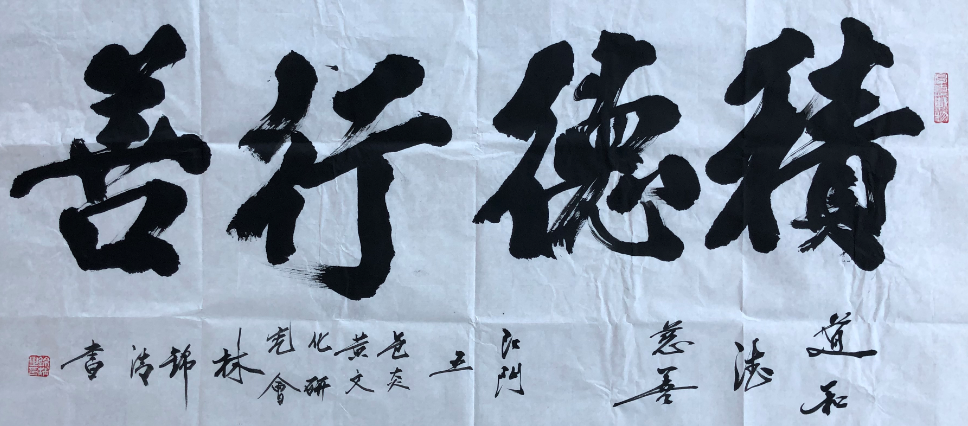 積德行善
道和
德
慈善
江門
五
邑炎
黄文
化研
究會
林
錦
清
書